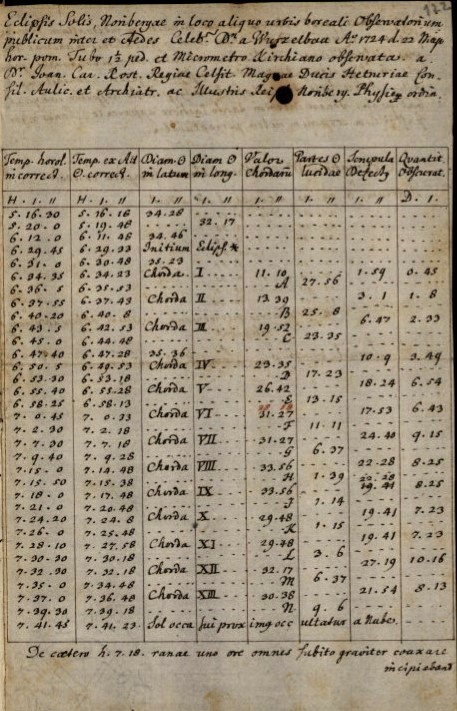 122
Eclipsis Solis, Noribergae in loco aliquo urbis boreali Observatorium
publicum inter et Aedes Celeb. D. a Wurzelbau Ao. 1724 d. 22 Maji
hor. pom. Tubo ped. et Micrometro Kirchiano observatas. a
D. Joan. Car. Rost. Regiae Celsit. Magnae Ducis Hetruriae Con-
sil. Aulic. et Archiatr. ac Illustris Noriberg. Physico ordin.
Temp. horol. Temp. ex Alt. Diam. ☉ Diam ☉ Valor Partes ☉ Scrupula Quantit.
incorrect. ☉ correct. in latum in long. Chordaru lucidae Defectus Obscurat.
H . I . II H . I . II I . II I . II I . II I . II I . II D . I .
5 . 16 . 30 5 . 16 . 16 34 . 28
5 . 20 . 0 5 . 19 . 46 32 . 17
6 . 12 . 0 6 . 11 . 46 34 . 46
6 . 29 . 45 6 . 29 . 33 Initium Eclips.
6 . 31 . 0 6 . 30 . 48 35 . 23
6 . 34 . 35 6 . 34 . 23 Chorda I 11 . 10 1 . 59 0 . 45
6 . 36 . 5 6 . 35 . 53 A 27 . 56
6 . 37 . 55 6 . 37 . 43 Chorda II 13 . 39 3 . 1 1 . 8
6 . 40 . 20 6 . 40 . 8 B 25 . 8
6 . 43 . 5 6 . 42 . 53 Chorda III 19 . 52 6 . 47 2 . 33
6 . 45 . 0 6 . 44 . 48 C 23 . 35
6 . 47 . 40 6 . 47 . 28 35 . 36
6 . 50 . 5 6 . 49 . 53 Chorda IV 23 . 35 10 . 9 3 . 49
6 . 53 . 30 6 . 53 . 18 D 17 . 23
6 . 55 . 40 6 . 55 . 28 Chorda V 26 . 42 18 . 24 6 . 54
6 . 58 . 25 6 . 58 . 13 E 13 . 15
7 . 0 . 45 7 . 0 . 33 Chorda VI 31 . 27 17 . 53 6 . 43
7 . 2 . 30 7 . 2 . 18 F 11 . 11
7 . 7 . 30 7 . 7 . 18 Chorda VII 31 . 27 24 . 40 9 . 15
7 . 9 . 40 7 . 9 . 28 G 6 . 37
7 . 15 . 0 7 . 14 . 48 Chorda VIII 33 . 56 22 . 28 8 . 25
7 . 15 . 50 7 . 15 . 38 H 1 . 39 22 . 28
7 . 18 . 0 7 . 17 . 48 Chorda IX 33 . 56 19 . 41 8 . 25
7 . 21 . 0 7 . 20 . 48 J 1 . 14
7 . 24 . 20 7 . 24 . 8 Chorda X 29 . 48 19 . 41 7 . 23
7 . 26 . 0 7 . 25 . 48 K 1 . 15
7 . 28 . 10 7 . 27 . 58 Chorda XI 29 . 48 19 . 41 7 . 23
7 . 30 . 30 7 . 30 . 18 L 3 . 6
7 . 32 . 30 7 . 32 . 18 Chorda XII 32 . 17 27 . 19 10 . 16
7 . 35 . 0 7 . 34 . 48 M 6 . 37
7 . 37 . 0 7 . 36 . 48 Chorda XIII 30 . 38 21 . 54 8 . 13
7 . 39 . 30 7 . 39 . 18 N 9 . 6
7 . 41 . 45 7 . 41 . 23 Sol occasui prox imq occultatur a Nube
De caetero h. 7. 18. ranae uno ore omnes subito graviter coaxare
incipiebant